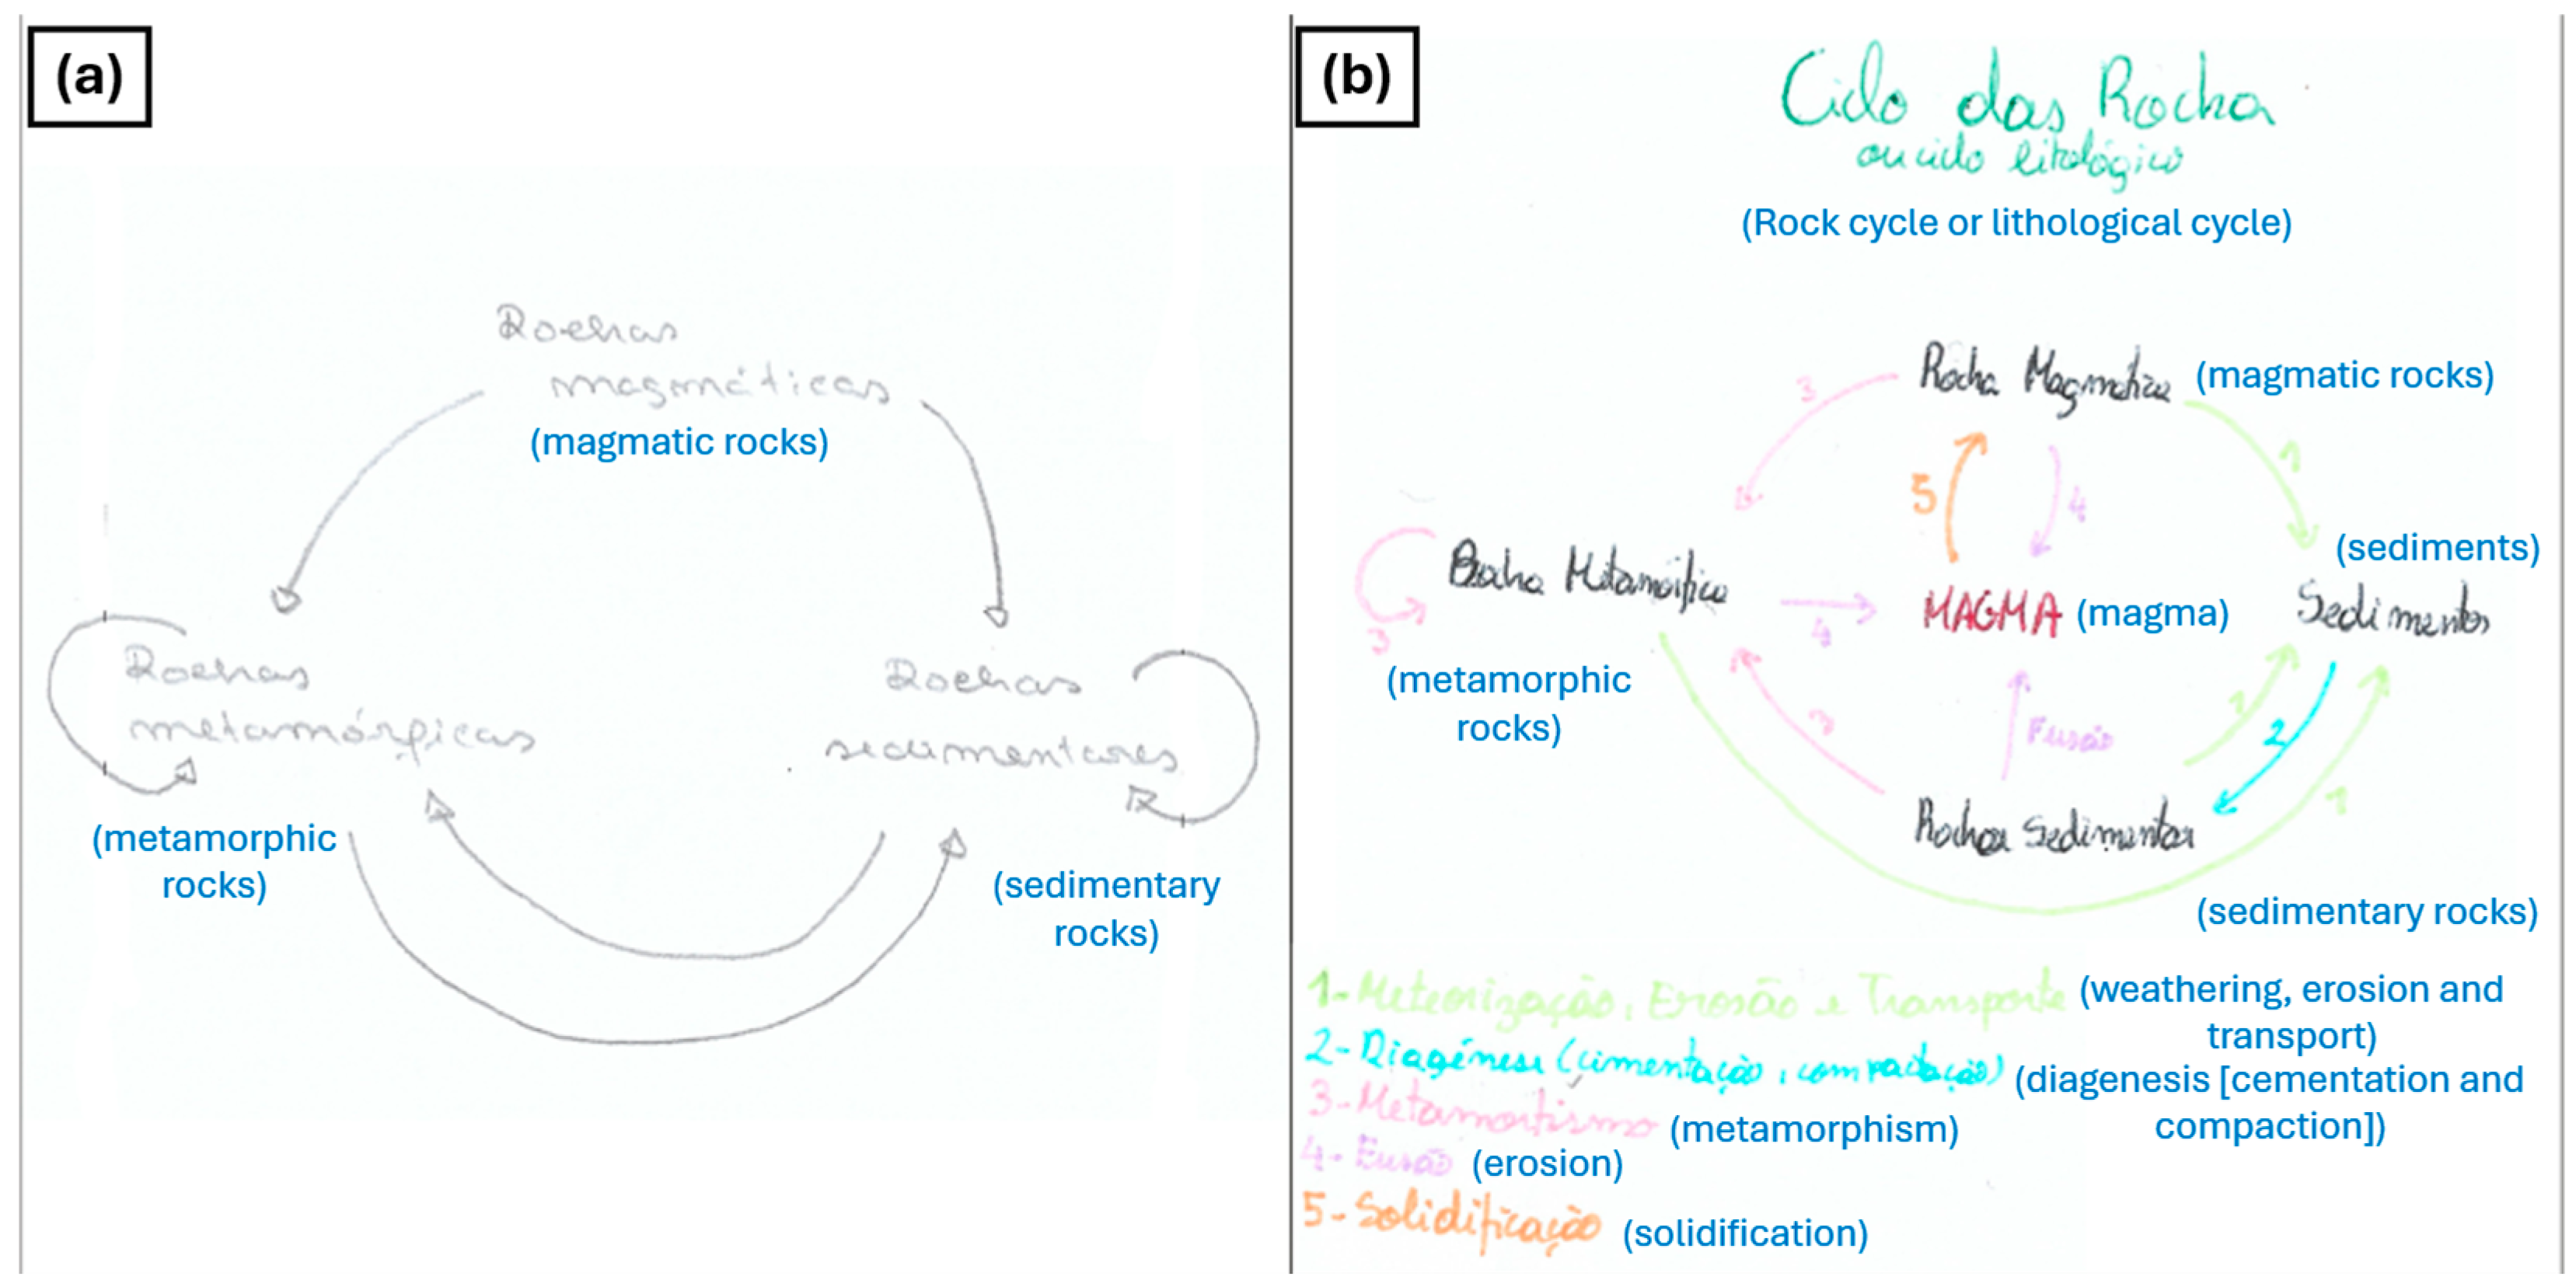 (a)
Rochas
magmáticas
(magmatic rocks)
Rochas
metamórficas
(metamorphic
rocks)
Rochas
sedimentares
(sedimentary
rocks)
(b)
Ciclo das Rocha
ou ciclo litológico
(Rock cycle or lithological cycle)
Rocha Magmática (magmatic rocks)
3
1
5
4
(sediments)
Rocha Metamórfica
MAGMA (magma)
Sedimentos
3
4
(metamorphic
rocks)
3
Fusão
1
2
1
Rochas Sedimentar
(sedimentary rocks)
1- Meteorização, Erosão e Transporte (weathering, erosion and
transport)
2- Diagénese (cimentação, compactação) (diagenesis [cementation and
compaction])
3- Metamorfismo (metamorphism)
4- Fusão (erosion)
5- Solidificação (solidification)